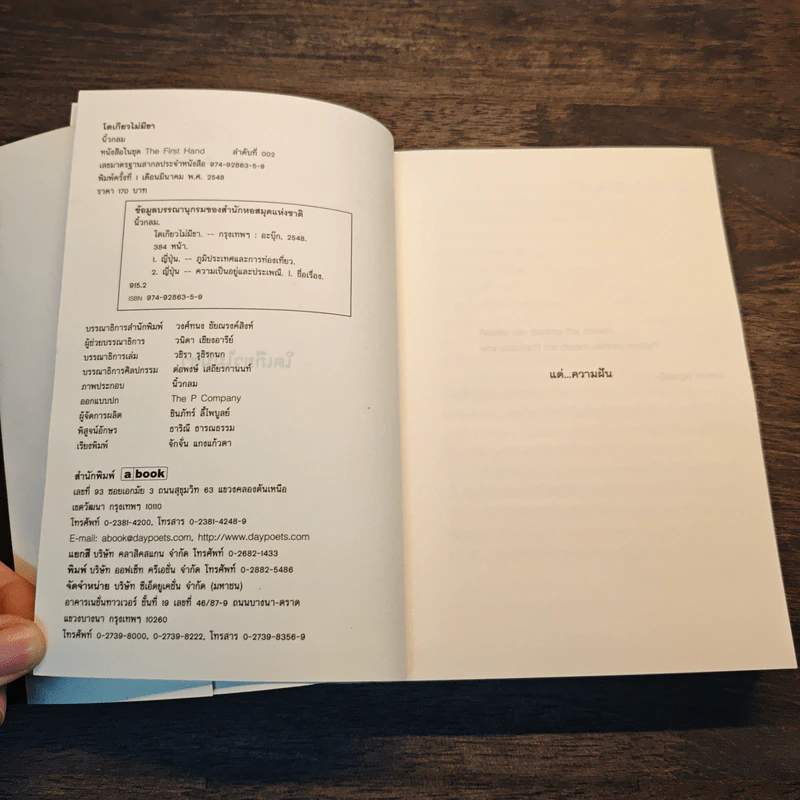 โตเกียวไม่มีขา
นิ้วกลม
หนังสือในชุด The First Hand ลำดับที่ 002
เลขมาตรฐานสากลประจำหนังสือ 974-92863-5-9
พิมพ์ครั้งที่ 1 เดือนมีนาคม พ.ศ. 2548
ราคา 170 บาท
ข้อมูลบรรณานุกรมของสำนักหอสมุดแห่งชาติ
นิ้วกลม.
โตเกียวไม่มีขา. -- กรุงเทพฯ : อะบุ๊ก, 2548.
384 หน้า.
1. ญี่ปุ่น -- ภูมิประเทศและการท่องเที่ยว.
2. ญี่ปุ่น -- ความเป็นอยู่และประเพณี. I. ชื่อเรื่อง.
915.2
ISBN 974-92863-5-9
บรรณาธิการสำนักพิมพ์ วงศ์ทนง ชัยณรงค์สิงห์
ผู้ช่วยบรรณาธิการ วนิดา เขียงอารีย์
บรรณาธิการเล่ม วชิรา รุธิรกนก
บรรณาธิการศิลปกรรม ต่อพงษ์ เสถียรกานนท์
ภาพประกอบ นิ้วกลม
ออกแบบปก The P Company
ผู้จัดการผลิต ชินภัทร์ ลี้ไพบูลย์
พิสูจน์อักษร ธาริณี ธารณธรรม
เรียงพิมพ์ จักจั่น แกงแก้วตา
สำนักพิมพ์ a book
เลขที่ 93 ซอยเอกมัย 3 ถนนสุขุมวิท 63 แขวงคลองตันเหนือ
เขตวัฒนา กรุงเทพฯ 10110
โทรศัพท์ 0-2381-4200, โทรสาร 0-2381-4248-9
E-mail: abook@daypoets.com, http://www.daypoets.com
แยกสี บริษัท คลาลิคสแกน จำกัด โทรศัพท์ 0-2682-1433
พิมพ์ บริษัท ออฟเซ็ท ครีเอชั่น จำกัด โทรศัพท์ 0-2882-5486
จัดจำหน่าย บริษัท ซีเอ็ดยูเคชั่น จำกัด (มหาชน)
อาคารเนชั่นทาวเวอร์ ชั้นที่ 19 เลขที่ 46/87-9 ถนนบางนา-ตราด
แขวงบางนา กรุงเทพฯ 10260
โทรศัพท์ 0-2739-8000, 0-2739-8222, โทรสาร 0-2739-8356-9
แด่...ความฝัน